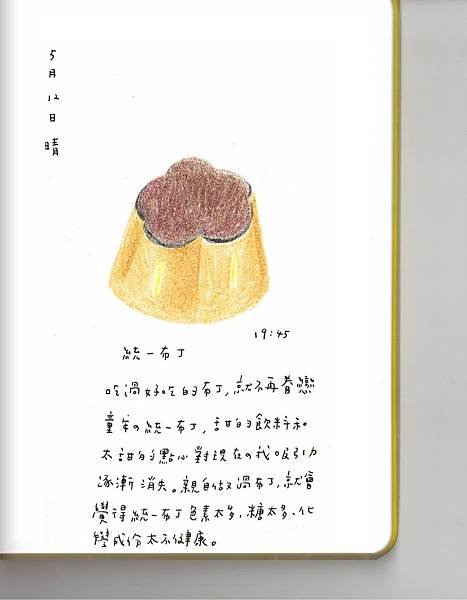 5月12日 晴
19:45
統一布丁
吃過好吃的布丁,就不再眷戀
童年の統一布丁,甜的飲料和
太甜的點心對現在の我吸引力
逐漸消失。親自做過布丁,就會
覺得統一布丁色素太多、糖太多、化
學成份太不健康。